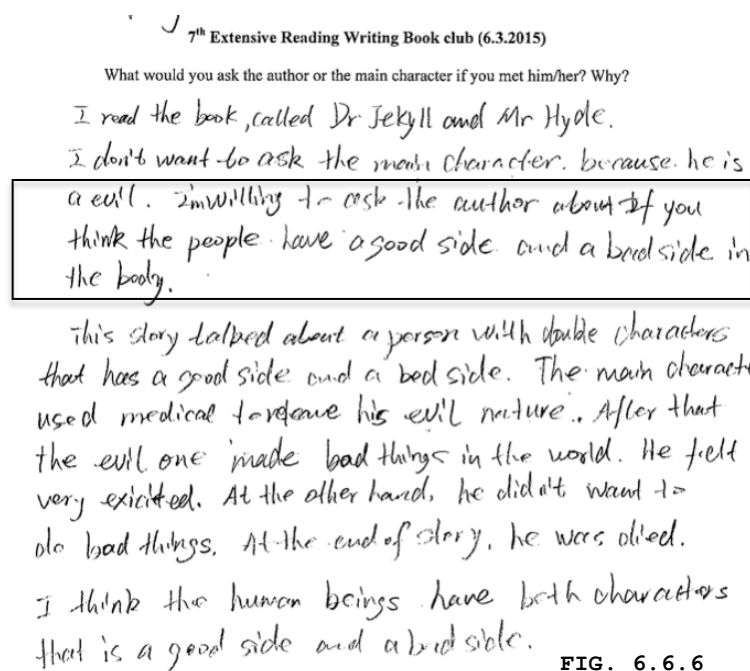 7th Extensive Reading Writing Book club (6.3.2015)
What would you ask the author or the main character if you met him/her? Why?
I read the book, called Dr Jekyll and Mr Hyde.
I don't want to ask the main character. because. he is
a evil. I'm willing to ask the author about If you
think the people have a good side and a bad side in
the body.
This story talked about a person with double characters
that has a good side and a bed side. The main charact
used medical to his evil nature. After that
the evil one made bad things in the world. He felt
very exicited. At the other hand, he didn't want to
do bad things. At the end of story, he was died.
I think the human beings have both characters
that is a good side and a bad side.
FIG. 6.6.6